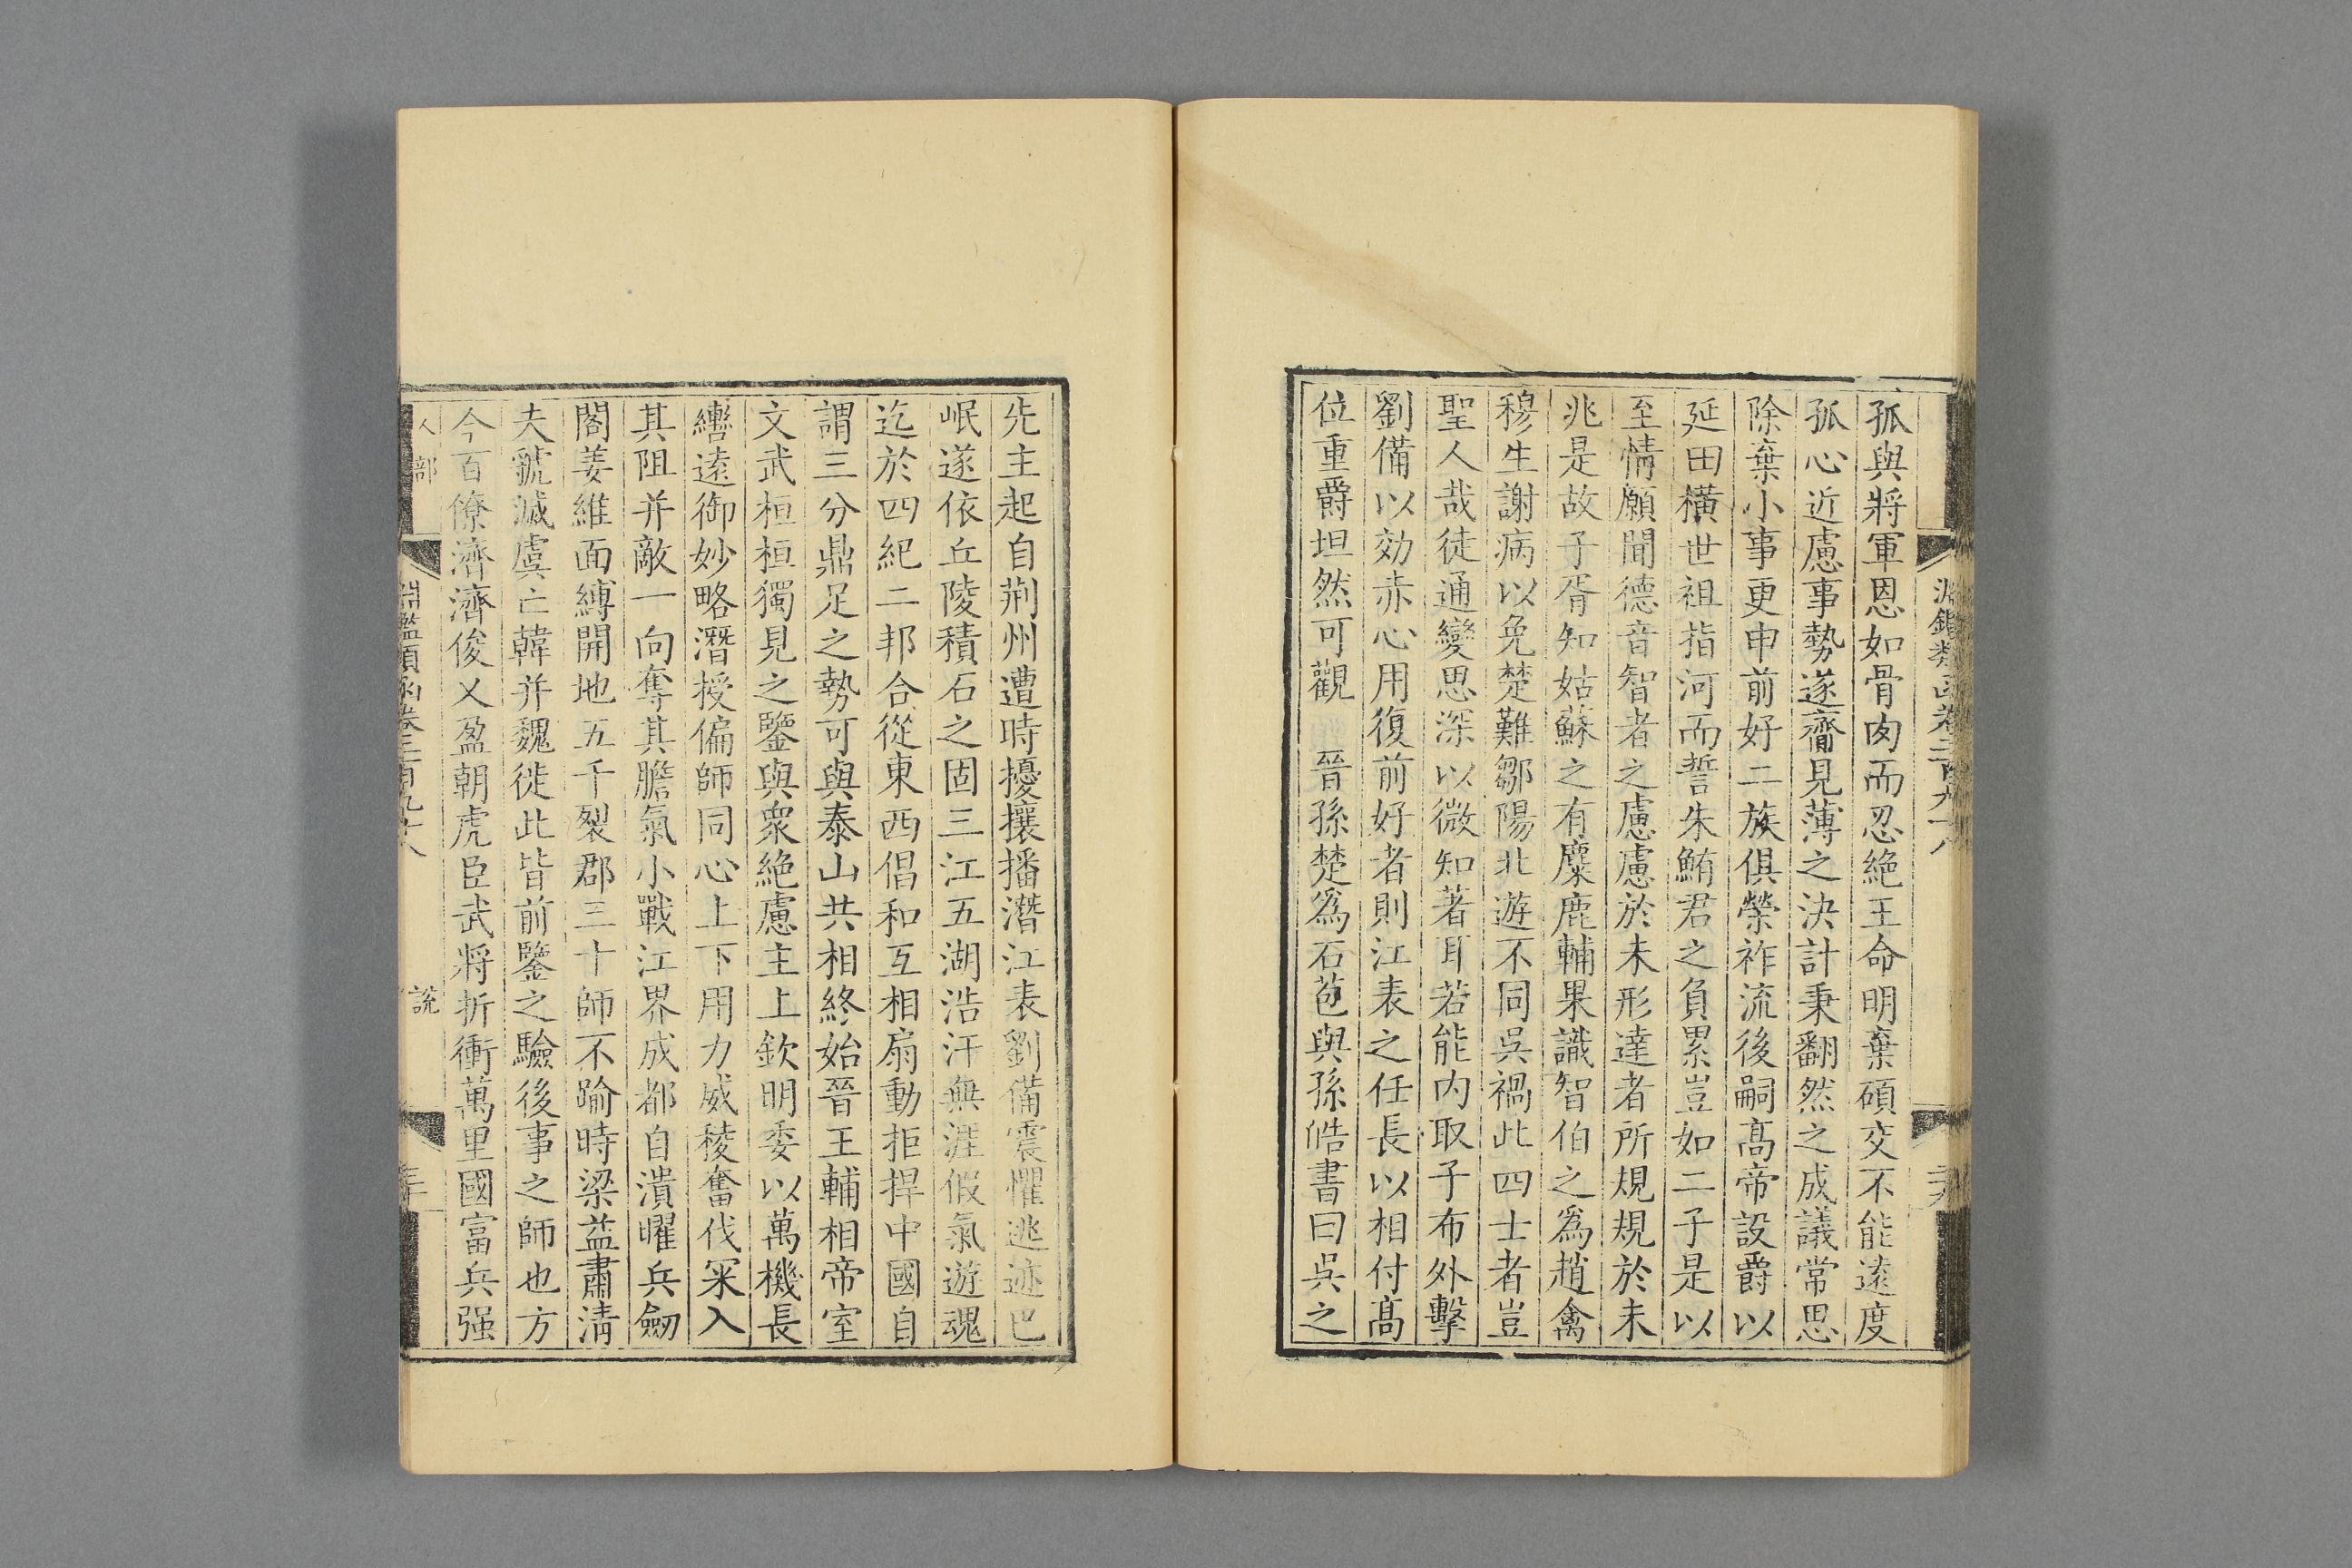 孤與將軍恩如骨肉而忍絶王命明棄碩交不能遠度
孤心近慮事勢遂齎見薄之決計秉翻然之成議常思
除棄小事更申前好二族俱榮祚流後嗣高帝設爵以
延田橫世祖指河而誓朱鮪君之負累豈如二子是以
至情願聞德音智者之慮慮於未形達者所規規於未
兆是故子胥知姑蘇之有麋鹿輔果識智伯之爲趙禽
穆生謝病以免楚難鄒陽北遊不同吳禍此四士者豈
聖人哉徒通變思深以微知著耳若能内取子布外擊
劉備以効赤心用復前好者則江表之任長以相付高
位重爵坦然可觀 晉孫楚爲石苞與孫皓書曰吳之
先主起自荆州遭時擾攘播潛江表劉備震懼逃迹巴
岷遂依丘陵積石之固三江五湖浩汗無涯假氣遊魂
迄於四紀二邦合從東西倡和互相扇動拒捍中國自
謂三分鼎足之勢可與泰山共相終始晉王輔相帝室
文武桓桓獨見之鑒與衆絶慮主上欽明委以萬機長
轡遠御妙略潛授偏師同心上下用力威稜奮伐罙入
其阻并敵一向奪其膽氣小戰江界成都自潰曜兵劒
閣姜維面縛開地五千裂郡三十師不踰時梁益肅淸
夫虢滅虞亡韓并魏徙此皆前鑒之驗後事之師也方
今百僚濟濟俊乂盈朝虎臣武將折衝萬里國富兵强
人部 淵鑑類函卷三百九十八 說